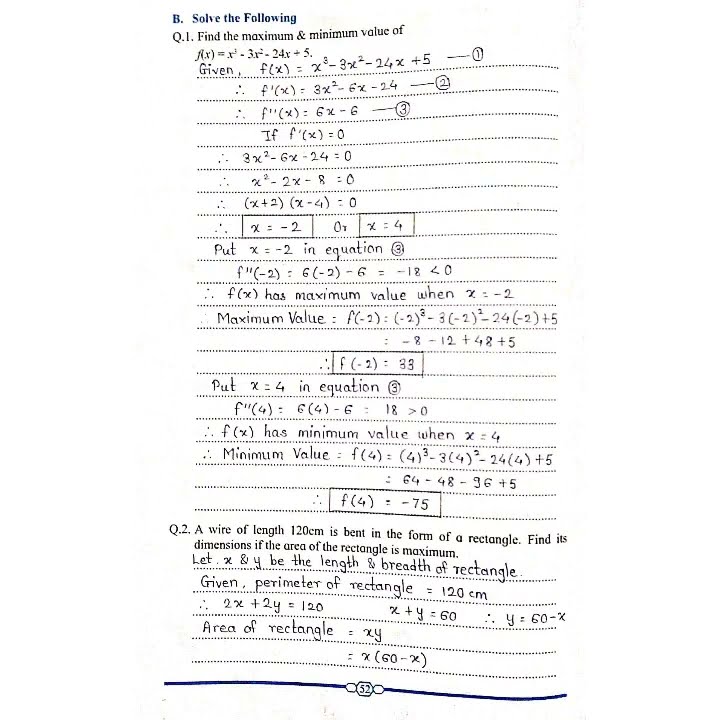 B. Solve the Following
Q.1. Find the maximum & minimum value of
f(x) = x³ - 3x² - 24x + 5.
Given, f(x) = x³ - 3x² - 24x + 5 — ①
∴ f'(x) = 3x² - 6x - 24 — ②
∴ f''(x) = 6x - 6 — ③
If f'(x) = 0
∴ 3x² - 6x - 24 = 0
∴ x² - 2x - 8 = 0
∴ (x+2) (x-4) = 0
∴ x = -2 Or x = 4
Put x = -2 in equation ③
f''(-2) = 6(-2) - 6 = -18 < 0
∴ f(x) has maximum value when x = -2
∴ Maximum Value = f(-2) = (-2)³ - 3(-2)² - 24(-2) + 5
= -8 - 12 + 48 + 5
∴ f(-2) = 33
Put x = 4 in equation ③
f''(4) = 6(4) - 6 = 18 > 0
∴ f(x) has minimum value when x = 4
∴ Minimum Value = f(4) = (4)³ - 3(4)² - 24(4) + 5
= 64 - 48 - 96 + 5
∴ f(4) = -75
Q.2. A wire of length 120cm is bent in the form of a rectangle. Find its
dimensions if the area of the rectangle is maximum.
Let x & y be the length & breadth of rectangle.
Given, perimeter of rectangle = 120 cm
∴ 2x + 2y = 120 x + y = 60 ∴ y = 60 - x
Area of rectangle = xy
= x(60 - x)
52